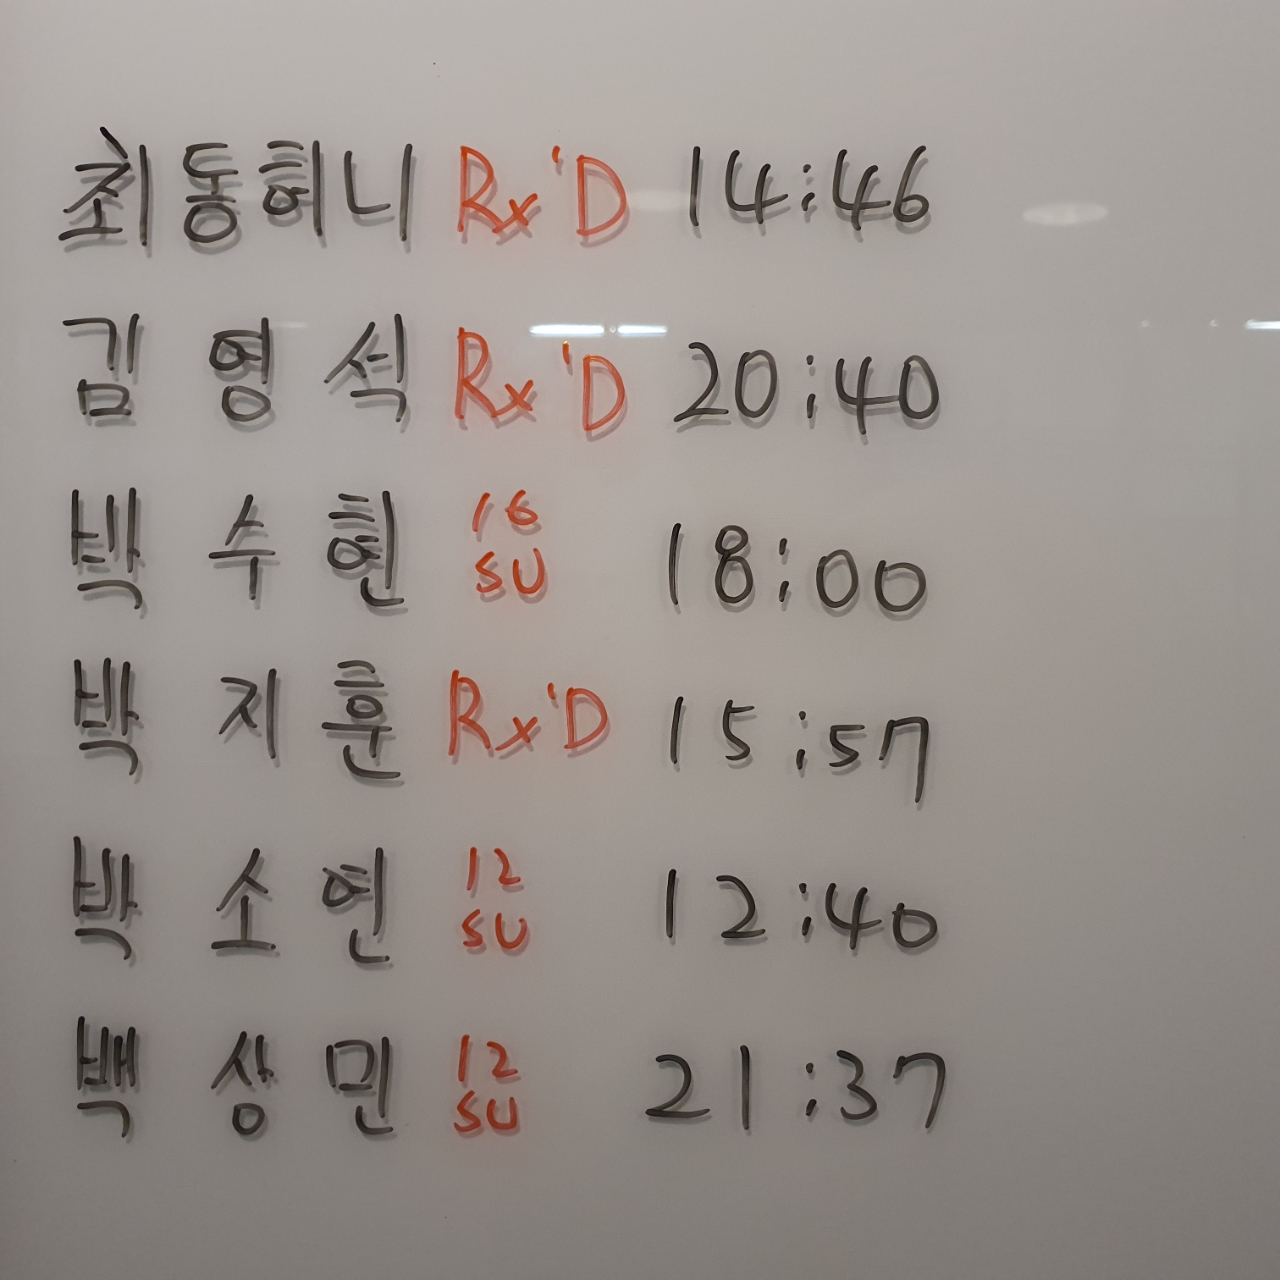 최동혀니 Rx'D 14:46
김영석 Rx'D 20:40
박수현 16 SU 18:00
박지훈 Rx'D 15:57
박소연 12 SU 12:40
백상민 12 SU 21:37